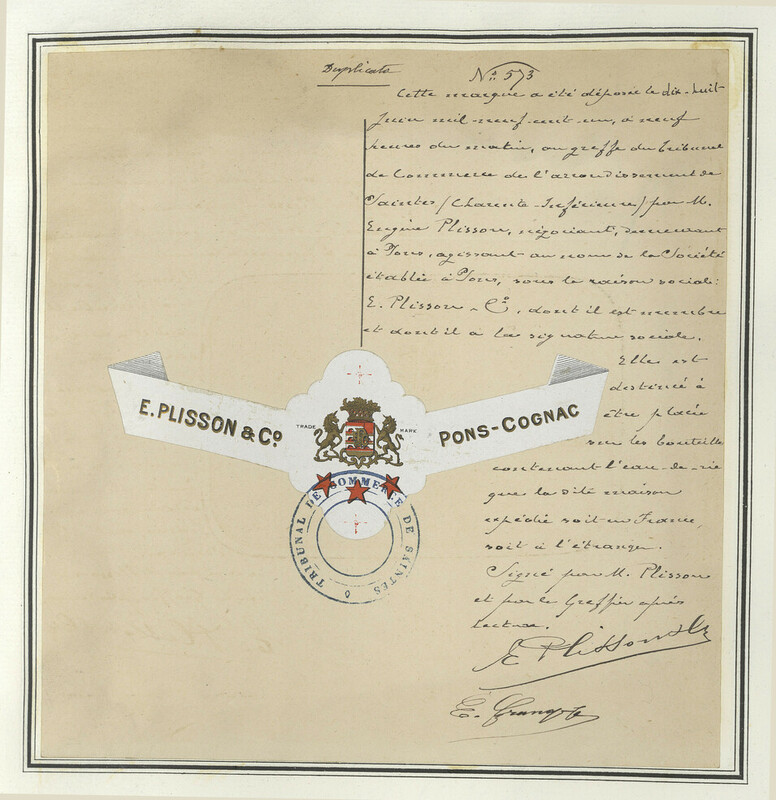 Duplicata
No. 573
Cette marque a été déposée le dix-huit
Juin mil-neuf-cent-un, à neuf
heures du matin, au greffe du Tribunal
de Commerce de l'arrondissement de
Saintes (Charente-Inférieure) par M.
Eugène Plisson, négociant, demeurant
à Pons, agissant au nom de la Société
établie à Pons, sous la raison sociale:
E. Plisson & Co, dont il est membre
et dont il a la signature sociale.
Elle est
destinée à
être placée
sur les bouteilles
contenant l'eau-de-vie
que la dite maison
expédie soit en France,
soit à l'étranger.
Signé par M. Plisson
et par le Greffier après
lecture.
E. PLISSON & Co.
TRADE MARK
PONS-COGNAC
TRIBUNAL DE COMMERCE DE SAINTES
E Plisson & Co